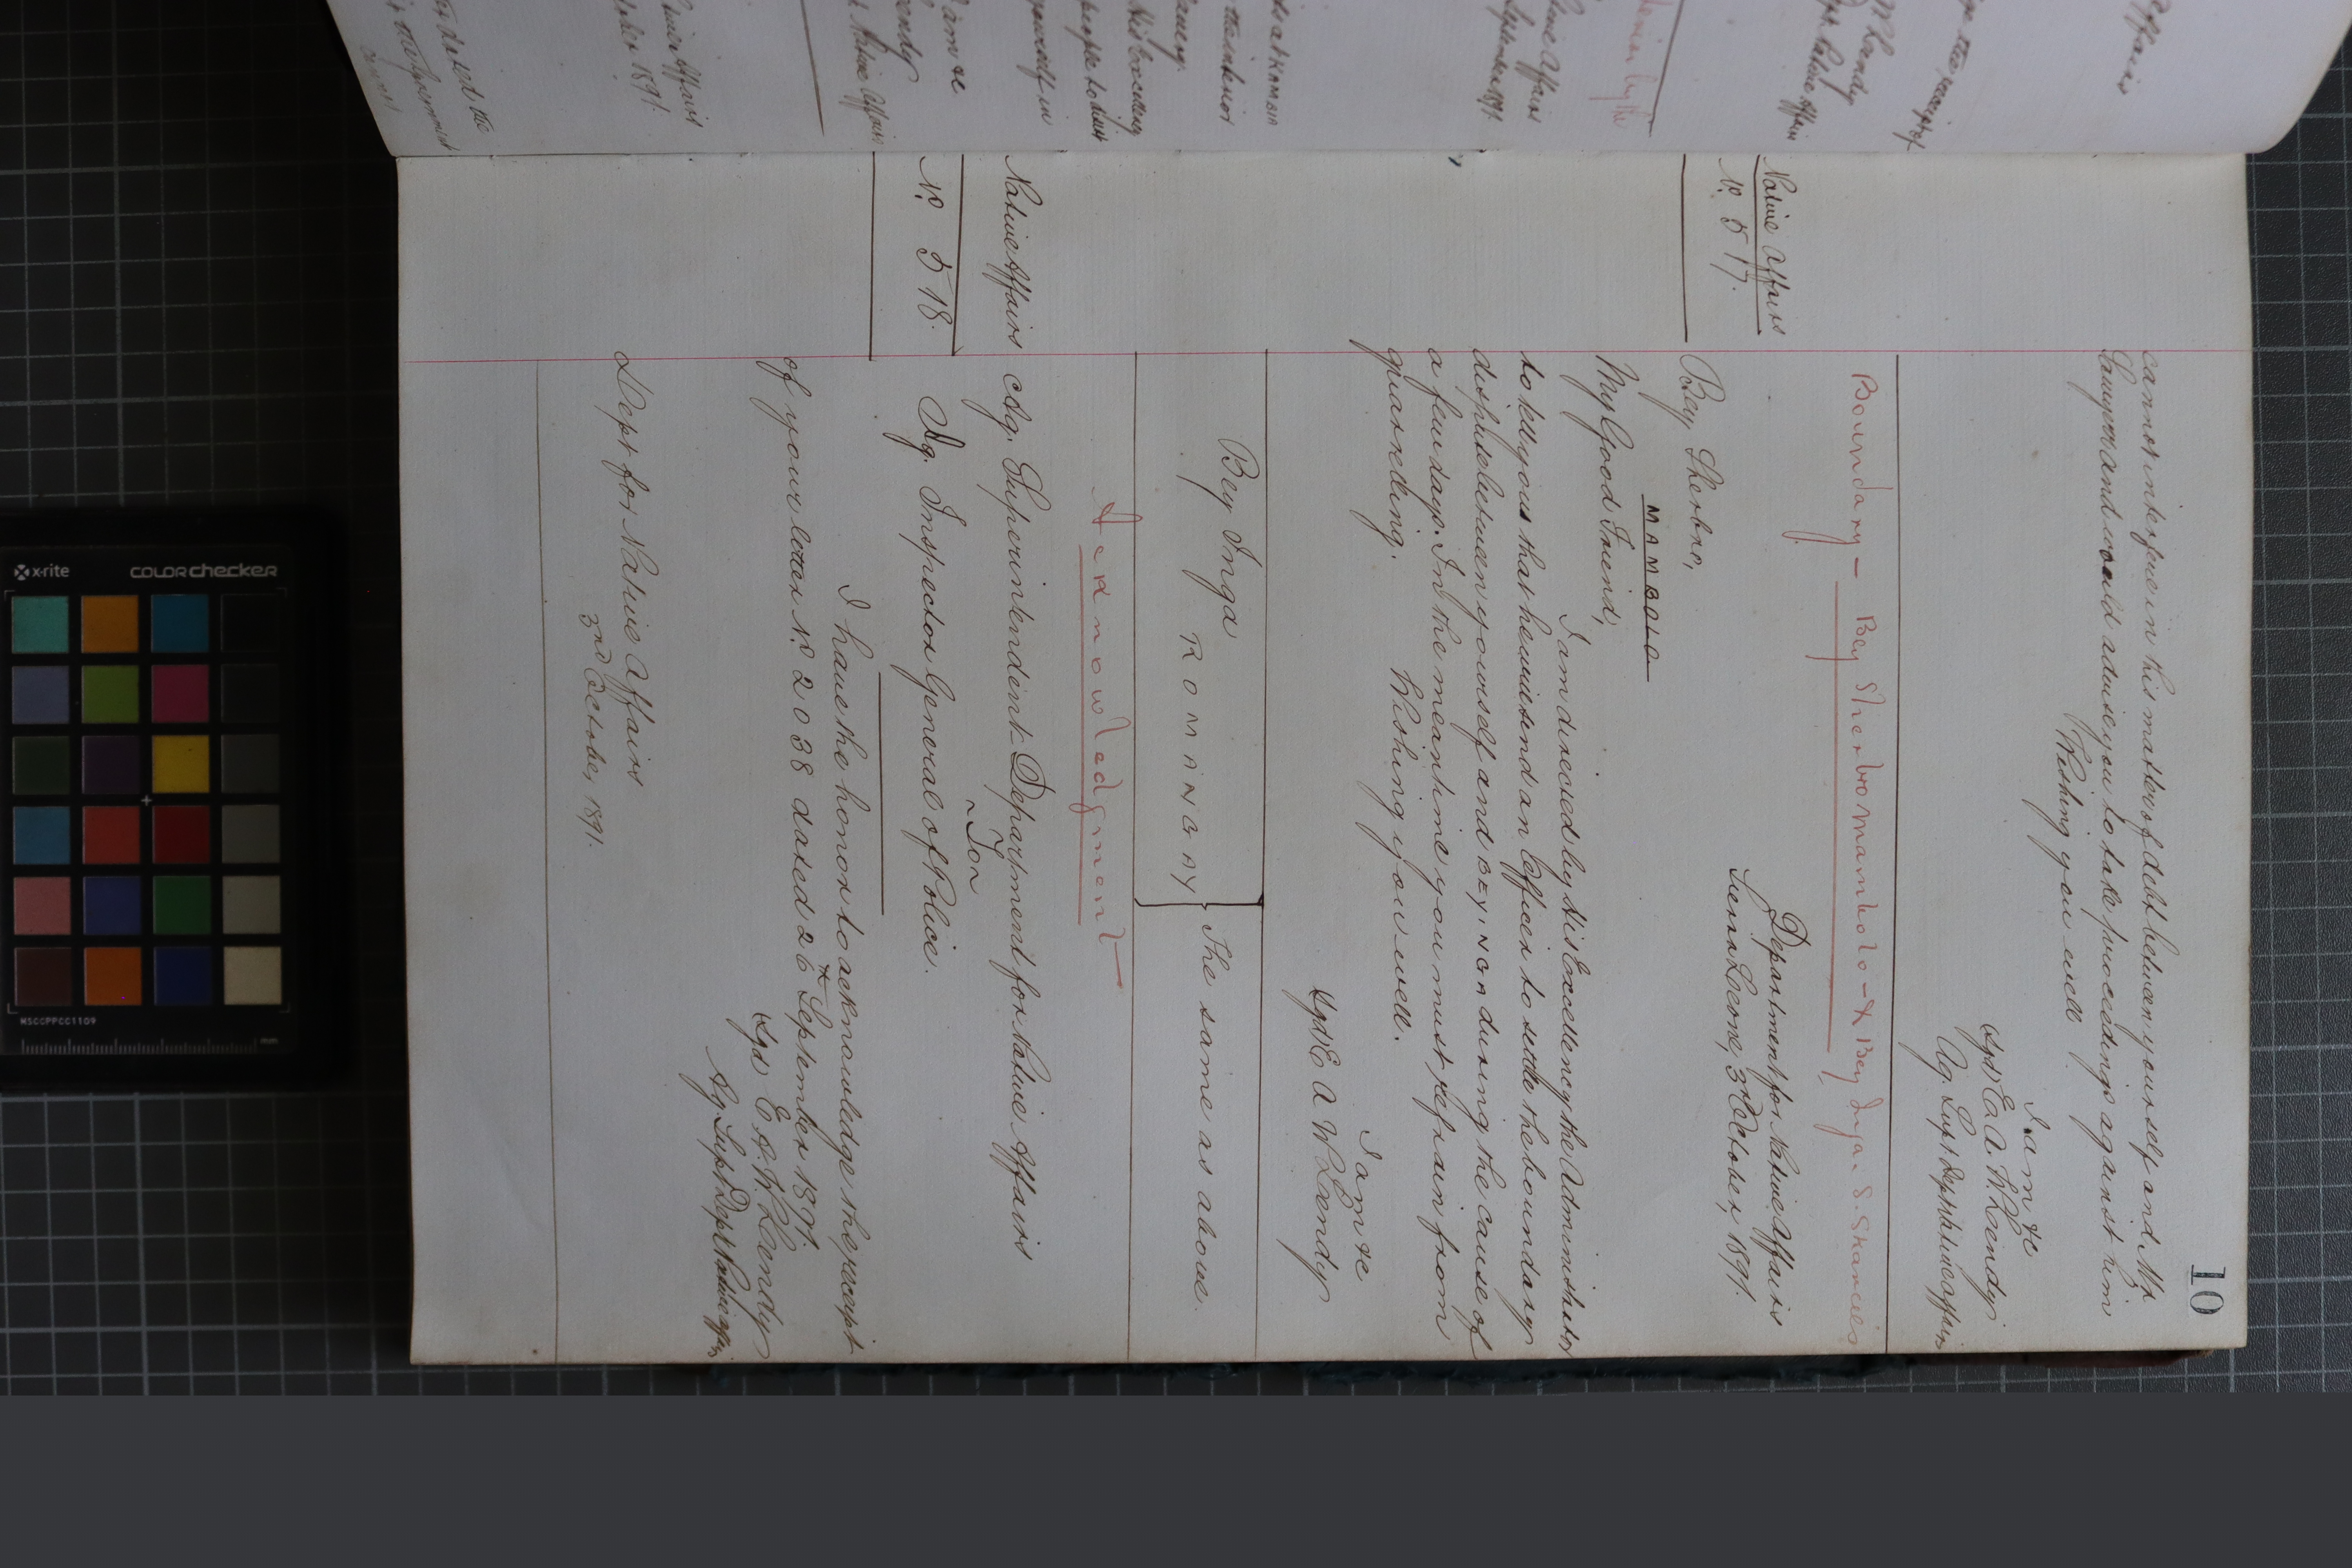 10
cannot interfere in this matter of debt between yourself and Mr
Sawyer and would advise you to take proceedings against him
Wishing you well
I am &c
Sgd E A W Lendy
Ag. Supt Dept Native Affairs
Boundary - Bey Sherbro Mambolo - & Bey Inga. S. Skarcies
Native Affairs
No. 517.
Department for Native Affairs
Sierra Leone, 3rd October, 1891.
Bey Sherbro,
MAMBOLO
My Good Friend,
I am directed by His Excellency the Administrator
to tell you that he will send an Officer to settle the boundary
dispute between yourself and BEY INGA during the cause of
a few days. In the meantime you must refrain from
quarreling. Wishing you well.
I am &c
Sgd E A W Lendy
Bey Inga
ROMANGAY
The same as above.
Acknowledgment
Native Affairs
No. 518.
Ag. Superintendent Department for Native Affairs
To
Ag. Inspector General of Police.
I have the honor to acknowledge the receipt
of your letter No. 2038 dated 26th September 1891.
Sgd E. A. W Lendy
Ag Supt Dept Native Affrs
Dept for Native Affairs
3rd October, 1891.
x-rite
colorchecker
MSCCPPCC1109
mm